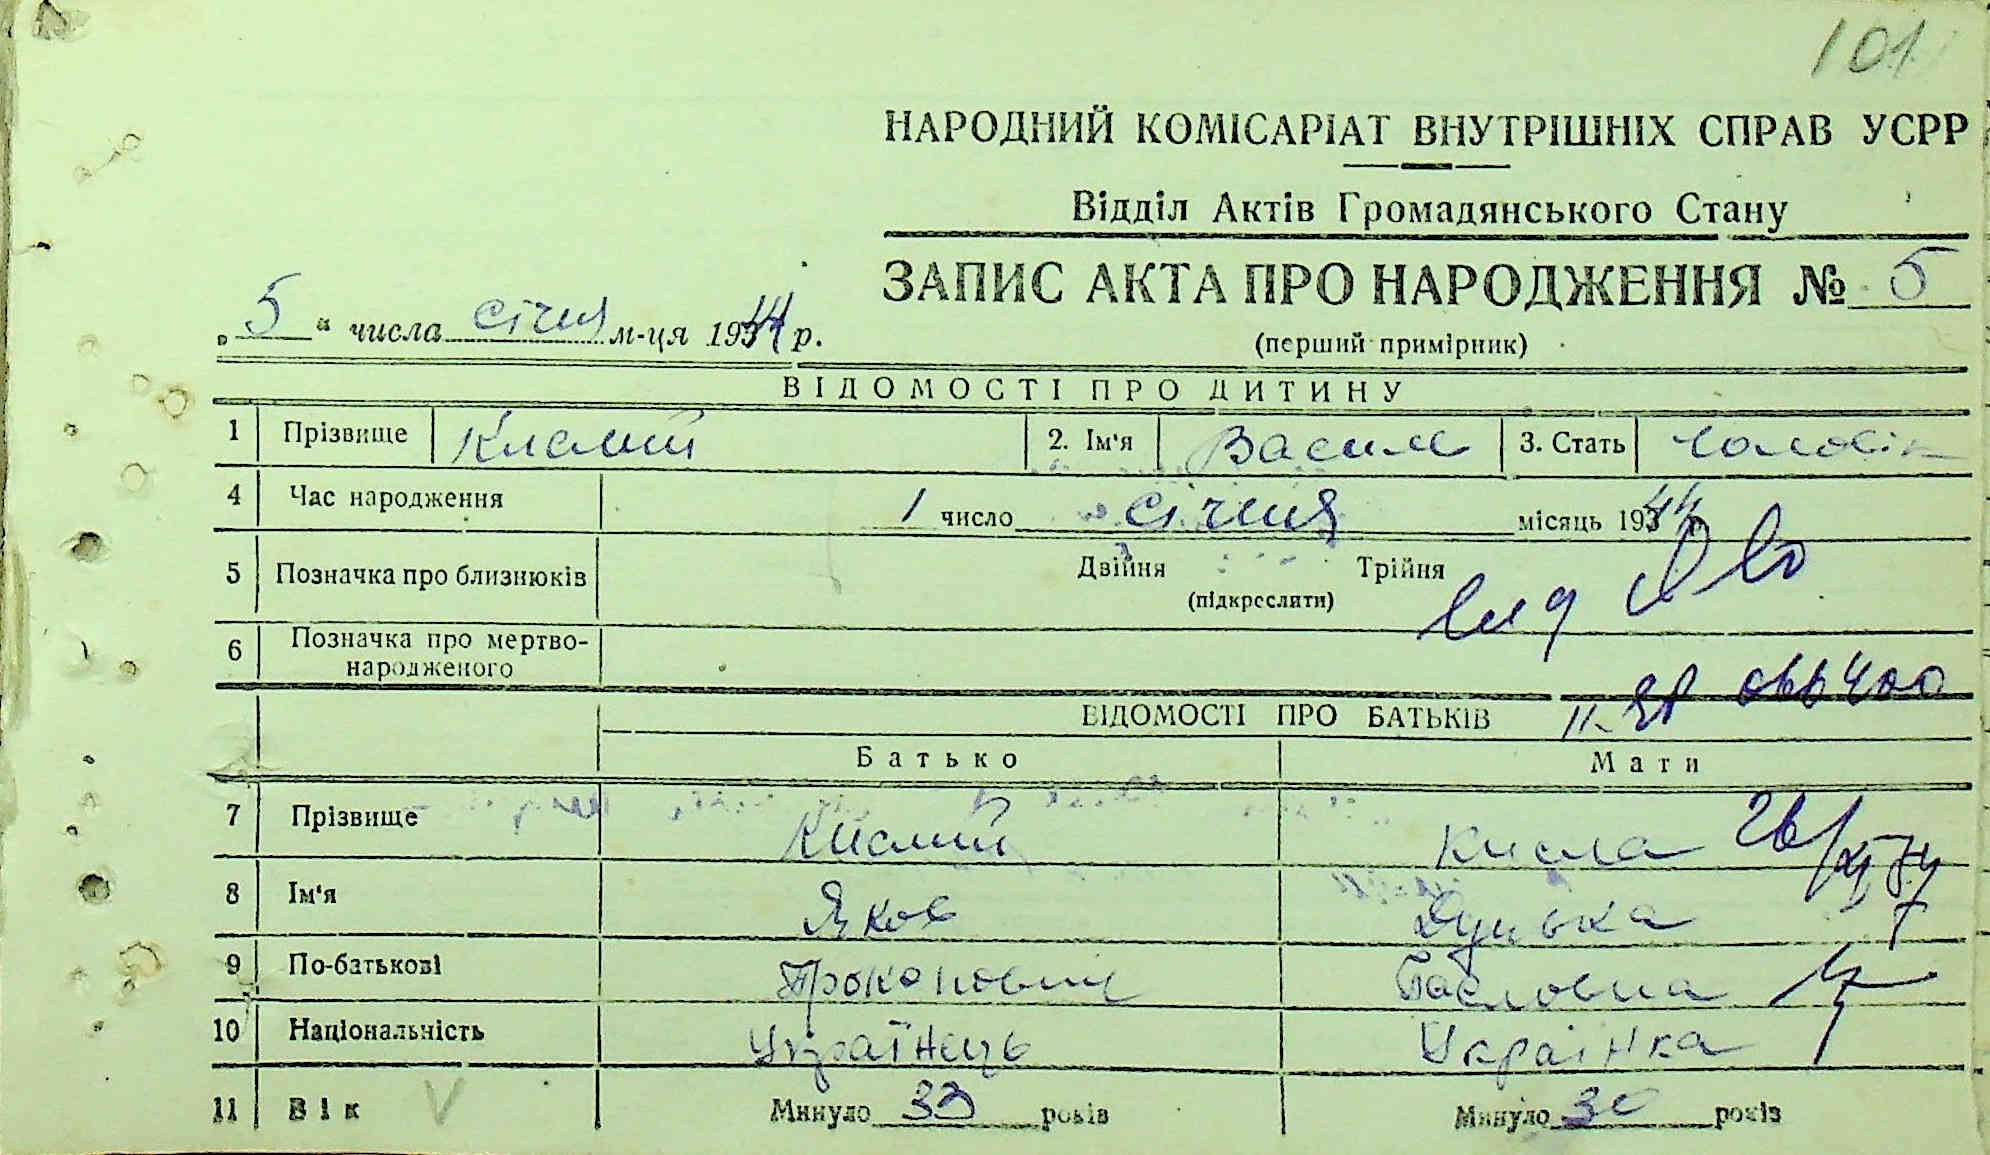 101
НАРОДНИЙ КОМІСАРІАТ ВНУТРІШНІХ СПРАВ УСРР
Відділ Актів Громадянського Стану
ЗАПИС АКТА ПРО НАРОДЖЕННЯ № 5
„ 5 “ числа січня м-ця 1944 р.
(перший примірник)
ВІДОМОСТІ ПРО ДИТИНУ
1 Прізвище Кислий 2. Ім'я Васил 3. Стать чоловік
4 Час народження 1 число січня місяць 1944
5 Позначка про близнюків Двійня Трійня
(підкреслити)
6 Позначка про мертво-
народженого
ВІДОМОСТІ ПРО БАТЬКІВ
Батько Мати
7 Прізвище Кислий Кисла
8 Ім'я Яков Дунька
9 По-батькові Прокопович Павловна
10 Національність Українець Українка
11 Вік Минуло 33 років Минуло 30 років